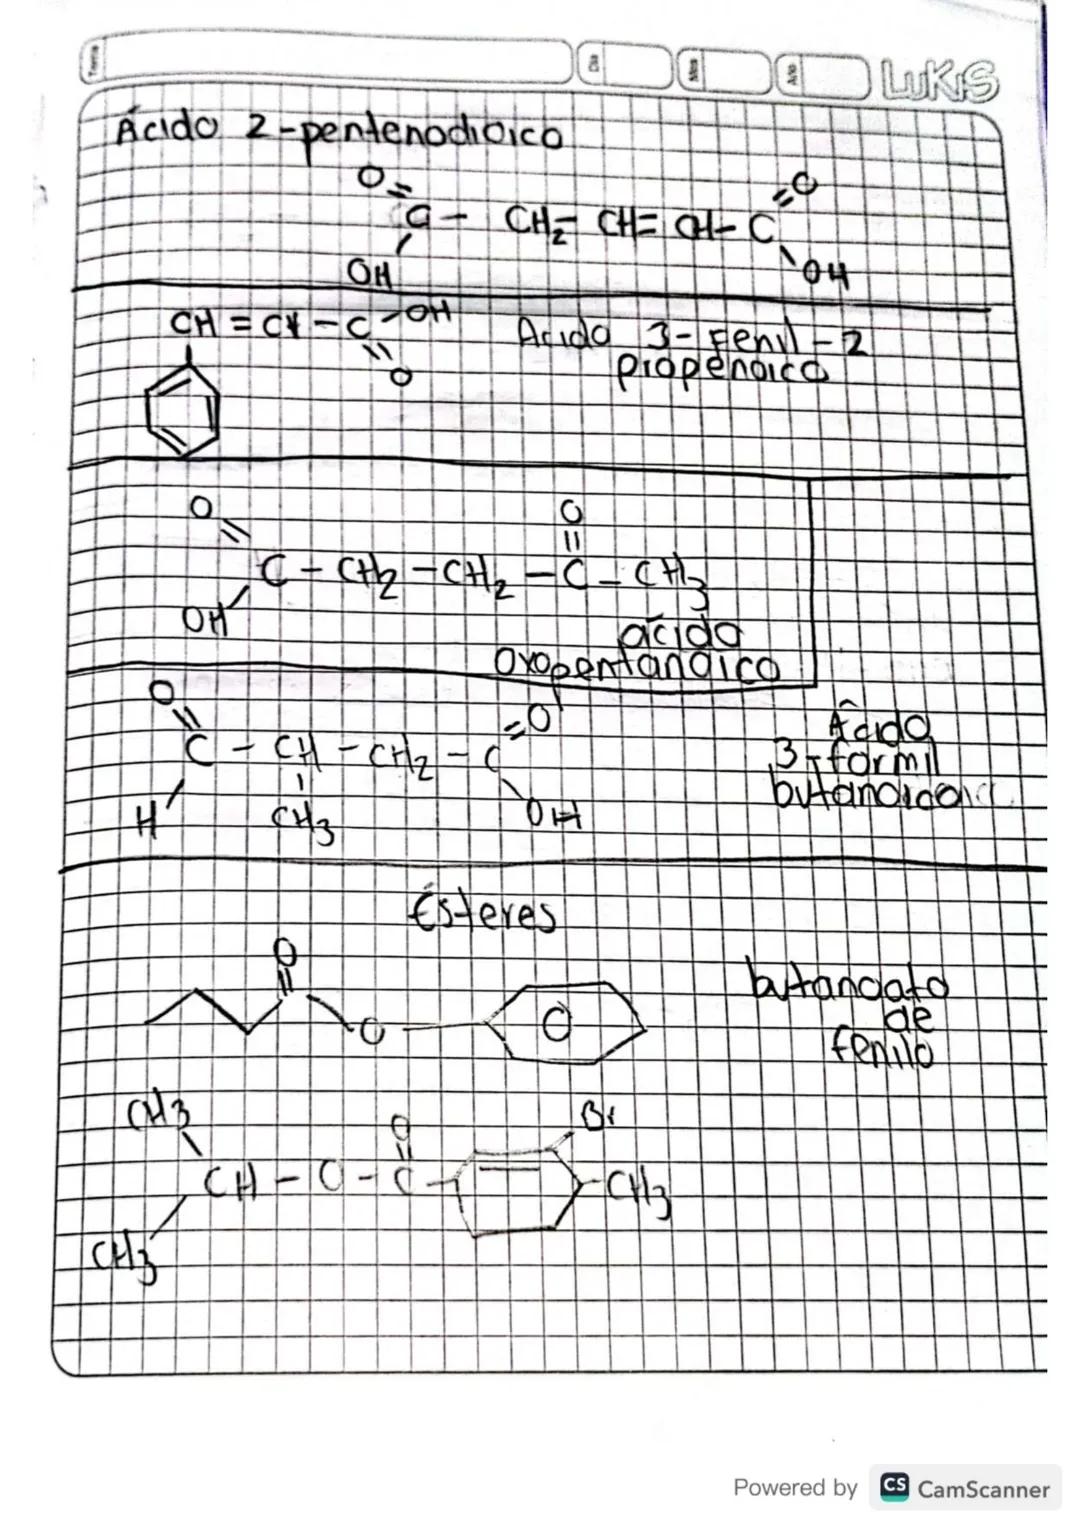 Tema Día Mes Año LUKIS
Ácido 2-pentenodioico
O = C - CH2 - CH = CH - C = O
OH OH
CH = CH - C - OH
O
Acido 3-Fenil-2
propenoico
O O
C - CH2 - CH2 - C - CH3
OH
ácido
oxopentanoico
O = C - CH - CH2 - C = O
H CH3 OH
Ácido
3-formil
butanoico
Ésteres
O
O
butanoato
de
fenilo
CH3
O Br
CH - O - C - CH3
CH3
Powered by CS CamScanner